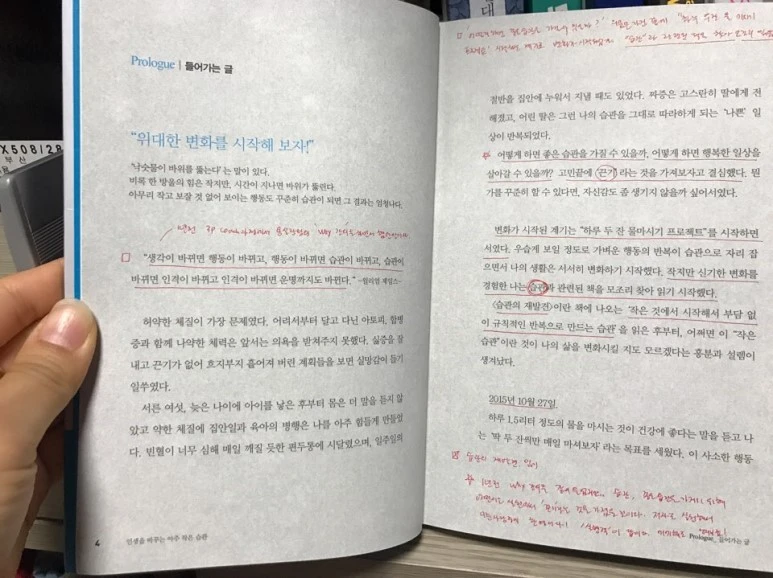 Prologue | 들어가는 글
“위대한 변화를 시작해 보자!”
‘낙숫물이 바위를 뚫는다’는 말이 있다.
비록 한 방울의 힘은 작지만, 시간이 지나면 바위가 뚫린다.
아무리 작고 보잘 것 없어 보이는 행동도 꾸준히 습관이 되면 그 결과는 엄청나다.
“생각이 바뀌면 행동이 바뀌고, 행동이 바뀌면 습관이 바뀌고, 습관이
바뀌면 인격이 바뀌고 인격이 바뀌면 운명까지도 바뀐다.” -윌리엄 제임스-
허약한 체질이 가장 문제였다. 어려서부터 달고 다닌 아토피, 합병
증과 함께 나약한 체력은 앞서는 의욕을 받쳐주지 못했다. 싫증을 잘
내고 끈기가 없어 흐지부지 흩어져 버린 계획들을 보면 실망감이 들기
일쑤였다.
서른 여섯, 늦은 나이에 아이를 낳은 후부터 몸은 더 말을 듣지 않
았고 약한 체질에 집안일과 육아의 병행은 나를 아주 힘들게 만들었
다. 빈혈이 너무 심해 매일 깨질 듯한 편두통에 시달렸으며, 일주일의
4 인생을 바꾸는 아주 작은 습관
절반을 집안에 누워서 지낼 때도 있었다. 짜증은 고스란히 딸에게 전
해졌고, 어린 딸은 그런 나의 습관을 그대로 따라하게 되는 ‘나쁜’ 일
상이 반복되었다.
어떻게 하면 좋은 습관을 가질 수 있을까, 어떻게 하면 행복한 일상을
살아갈 수 있을까? 고민끝에 ‘끈기’라는 것을 가져보자고 결심했다. 뭔
가를 꾸준히 할 수 있다면, 자신감도 좀 생기지 않을까 싶어서였다.
변화가 시작된 계기는 “하루 두 잔 물마시기 프로젝트”를 시작하면
서였다. 우습게 보일 정도로 가벼운 행동의 반복이 습관으로 자리 잡
으면서 나의 생활은 서서히 변화하기 시작했다. 작지만 신기한 변화를
경험한 나는 습관과 관련된 책을 모조리 찾아 읽기 시작했다.
〈습관의 재발견〉이란 책에 나오는 ‘작은 것에서 시작해서 부담 없
이 규칙적인 반복으로 만드는 습관’을 읽은 후부터, 어쩌면 이 “작은
습관”이란 것이 나의 삶을 변화시킬 지도 모르겠다는 흥분과 설렘이
생겨났다.
2015년 10월 27일
하루 1.5리터 정도의 물을 마시는 것이 건강에 좋다는 말을 듣고 나
는 ‘딱 두 잔씩만 매일 마셔보자’라는 목표를 세웠다. 이 사소한 행동
Prologue_ 들어가는 글